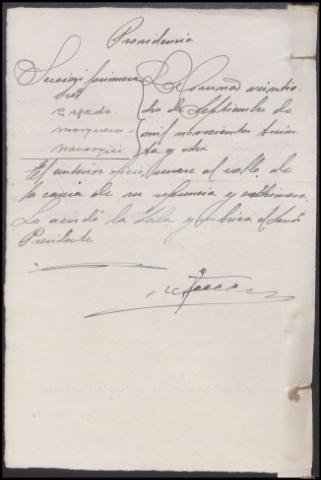 Providencia
Seccion primera
Sres
Cepeda
Mosquera
La Coruña veintio
cho de Septiembre de
mil novecientos trein-
ta y ocho
El anterior oficio unase al rollo de
la causa de su referencia y
Lo acordó la Sala y rubrica el Señor
Presidente